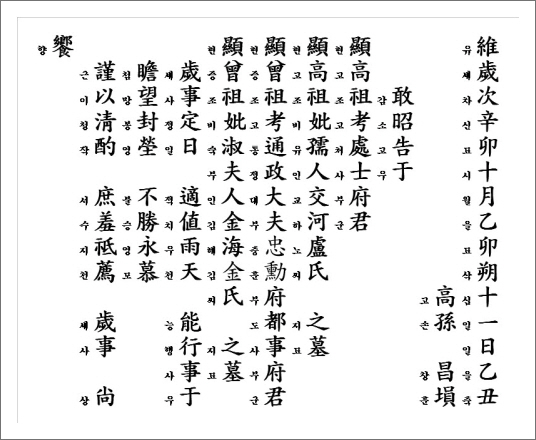 維歲次辛卯十月乙卯朔十一日乙丑
유세차신묘시월을묘삭십일일을축
高孫 昌塤
고손 창훈
敢昭告于
감소고우
顯高祖考處士府君
현고조고처사부군
顯高祖妣孺人交河盧氏 之墓
현고조비유인교하노씨 지묘
顯曾祖考通政大夫忠勳府都事府君
현증조고통정대부충훈부도사부군
顯曾祖妣淑夫人金海金氏 之墓
현증조비숙부인김해김씨 지묘
歲事定日 適値雨天 能行事于
세사정일 적치우천 능행사우
瞻望封塋 不勝永慕
첨망봉영 불승영모
謹以清酌 庶羞祗薦 歲事 尙
근이청작 서수지천 세사 상
饗
향